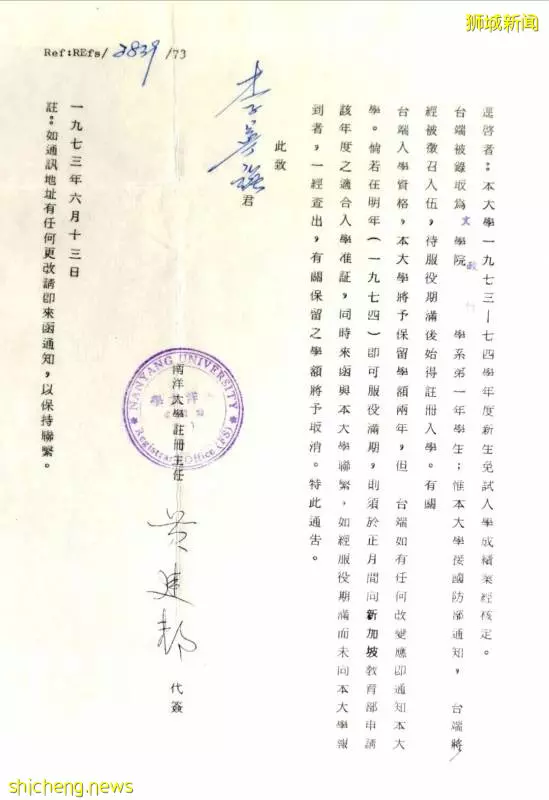 狮城新闻
Ref:REfs/2839/73
逕啓者:本大學一九七三—七四學年度新生免試入學成績業經核定。
台端被錄取為 文 學院 政 學系第一年學生;惟本大學接國防部通知, 台端將
經被徵召入伍,待服役期滿後始得註册入學。有關
台端入學資格,本大學將予保留學額兩年,但 台端如有任何改變應即通知本大
學。倘若在明年(一九七四)即可服役滿期,則須於正月間向新加坡教育部申請
該年度之適合入學准証,同時來函與本大學聯繫,如經服役期滿而未向本大學報
到者,一經查出,有關保留之學額將予取消。特此通告。
此致
李 君
NANYANG UNIVERSITY
Registrar's Office (FS)
南洋大學註冊主任
黄建邦 代簽
一九七三年六月十三日
註:如通訊地址有任何更改請即來函通知,以保持聯繫。
shicheng.news